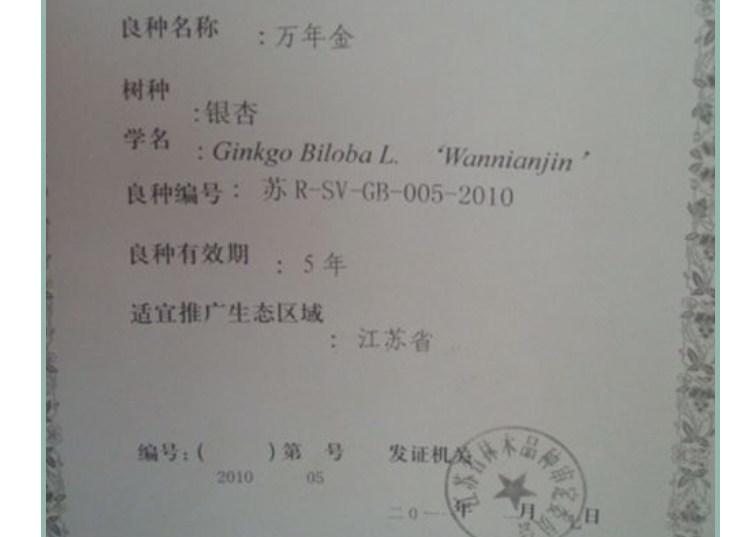 良种名称 : 万年金
树种 : 银杏
学名 : Ginkgo Biloba L. ‘Wannianjin’
良种编号 : 苏 R-SV-GB-005-2010
良种有效期 : 5 年
适宜推广生态区域 : 江苏省
编号:( 2010 )第 05 号
发证机关
江苏省林木品种审定委员
二0一 年 月 日